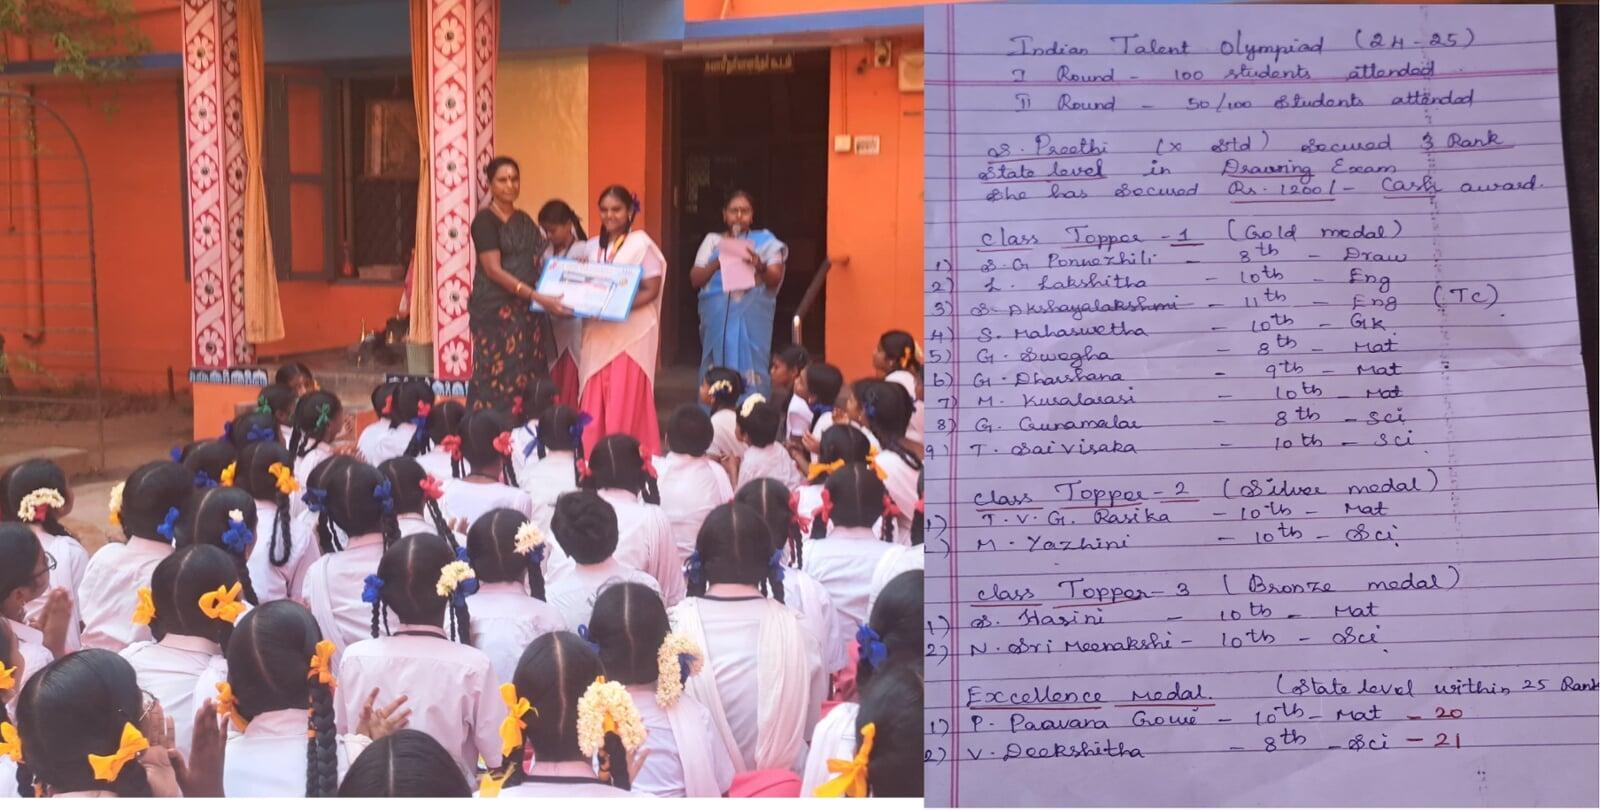 Indian Talent Olympiad (24-25)
I Round - 100 students attended
II Round - 50/100 Students attended
S. Preethi (X Std) Secured 3 Rank
State level in Drawing Exam
She has secured Rs. 1200/- Cash award.
Class Topper - 1 (Gold medal)
1) S. G Ponnezhili - 8th - Draw
2) L. Lakshitha - 10th - Eng
3) S. Akshayalakshmi - 11th - Eng (TC)
4) S. Mahaswetha - 10th - GK
5) G. Swegha - 8th - Mat
6) G. Dharshana - 9th - Mat
7) M. Kuralarasi - 10th - Mat
8) G. Gunamalar - 8th - Sci
9) T. Sai Visaka - 10th - Sci
Class Topper - 2 (Silver medal)
1) T. V. G. Rasika - 10th - Mat
) M. Yazhini - 10th - Sci
Class Topper - 3 (Bronze medal)
1) S. Hasini - 10th - Mat
2) N. Sri Meenakshi - 10th - Sci
Excellence Medal. (State level within 25 Rank
1) P. Paavana Gowri - 10th - Mat - 20
2) V. Deekshitha - 8th - Sci - 21